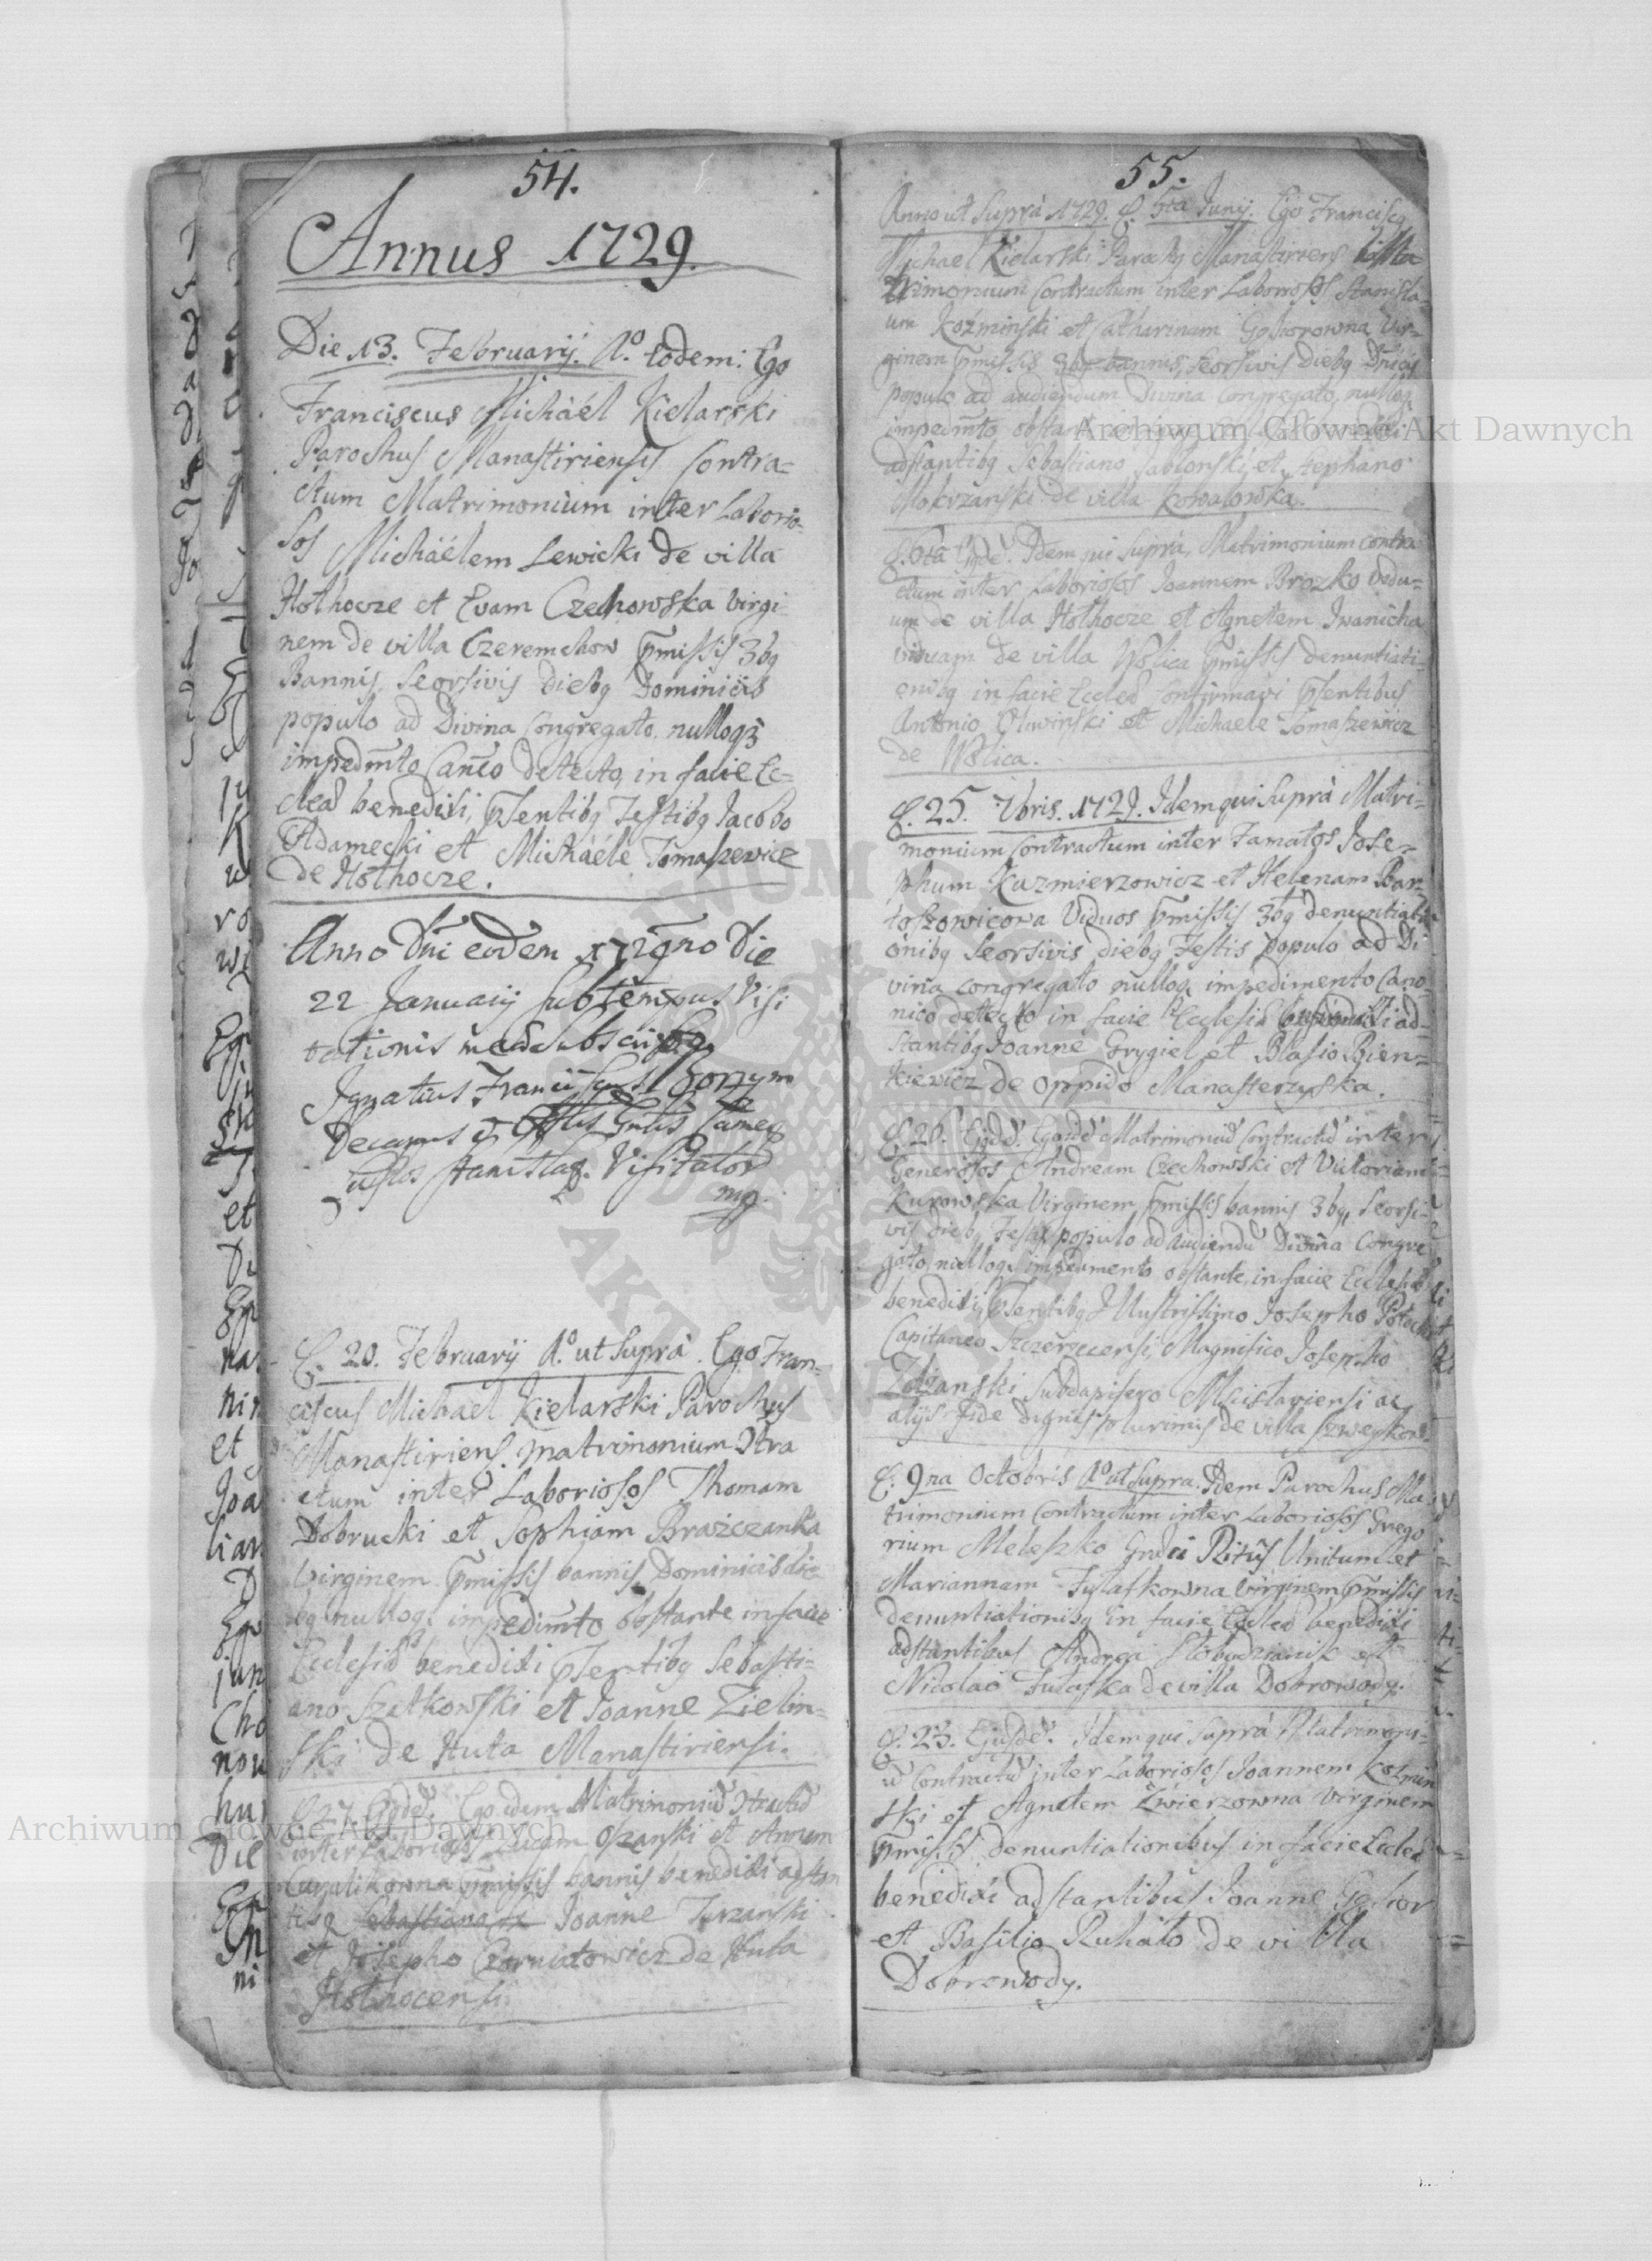 54.
Annus 1729.
Die 13. Februarij. Ao. Eodem: Ego
Franciscus Michaél Kielarski
Parochus Manastiriensis contra=
ctum Matrimonium inter Laborio-
sos Michaélem Lewicki de villa
Hołhocze et Evam Czechowska virgi
nem de villa Czeremchow pmissis 3bq
Bannis, seorsivis diebq Dominicis
populo ad Divina congregato, nulloqz
impedmto Canco detecto, in facie Ec=
cleae benedixi, psentibq Testibq Jacobo
Adamecki et Micháéle Tomaszewicz
de Hołhocze.
Anno Dni eodem 1729no Die
22 Januarij sub tempus Visi
tationis meae subscripsi
Ignatius Franciscus
Decanus
Visitator
mp
D. 20. Februarij Ao. ut suprà. Ego Fran=
ciscus Michael Kielarski Parochus
Manastiriens. matrimonium 9tra
ctum inter Laboriosos Thomam
Dobrucki et Sophiam Brażczanka
virginem pmissis bannis Dominicis die
bq nulloq impedimto obstante in facie
Ecclesiae benedixi psentibq Sebasti=
ano Szatkowski et Joanne Zielin=
ski de Huta Manastiriensi.
D. 27. Ejqde. Ego idem Matrimoniu 9tractu
inter Laborioss Lucam Oszanski et Annam
pmissis bannis benedixi adstan
tibq Joanne Turzanski
et Josepho Czorniatowicz de Huta
Hołhocensi.
55.
Anno ut Suprà 1729. D. 5ta Junij. Ego Franciscq
Michael Kielarski Parochq Manastiriens. Ma
trimonium contractum inter Laboriosos Stanisla=
um Kozminski et Catharinam Gąsiorowna Vir=
ginem pmissis 3bq bannis, seorsivis diebq Dnicis
populo ad audiendum Divina congregato, nulloq
impedmto obstante
adstantibq Sebastiano Jabłonski, et Stephano
Mokrzanski de villa Kowalowka.
D. 6ta Ejqde. Idem qui suprà, Matrimonium contra
ctum inter Laboriosos Joannem Brozko vidu=
um de villa Hołhocze et Agnetem Iwanicha
viduam de villa Wolica pmissis denuntiati=
onibq in facie Eccleae confirmavi psentibus
Antonio Oliwinski et Michaele Tomaszewicz
de Wolica.
D. 25. 7bris. 1729. Idem qui suprà Matri=
monium contractum inter Famatos Jose=
phum Kazmierzowicz et Helenam Bar=
toszowicowa Viduos pmissis 3bq denuntiati
onibq seorsivis diebq Festis populo ad Di
vina congregato nulloq impedimento Cano=
nico detecto in facie Ecclesiae ad=
stantibq Joanne Grygiel et Blasio Bien=
kiewicz de oppido Manasterzyska.
D. 26. Ejqde. Ego ide Matrimoniu contractu inter
Generosos Andream Czechowski et Victoriam
Kurowska Virginem pmissis bannis 3bq, seorsi=
vis diebq Festis populo ad audiendu Divina congre
gato, nulloq impedimento obstante, in facie Ecclesiae
benedixi, psentibq Illustrissimo Josepho Potocki
Capitaneo Szczerzecensi, Magnifico Josepho
Zabianski Subdapifero Mcislaviensi ac
alijs fide dignis plurimis de villa Szweykow.
D. 9na Octobris Ao ut supra. Idem Parochus Ma
trimonium contractum inter Laboriosos Grego
rium Meleszko Graeci Ritûs Unitum et
Mariannam Tulatkowna virginem pmissis
denuntiationibq in facie Eccleae benedixi
adstantibus Andrea Słobodzianik et
Nicolao Tułaska de villa Dobrowody.
D. 23. Ejusde. Idem qui suprà Matrimoni=
u contractu inter Laboriosos Joannem Kozmin
ski et Agnetem Zwierzowna virginem
pmissis denuntiationibus in facie Eccleae
benedixi adstantibus Joanne Gąsior
et Basilio Ruhało de villa
Dobrowody.
Archiwum Główne Akt Dawnych
Archiwum Główne Akt Dawnych